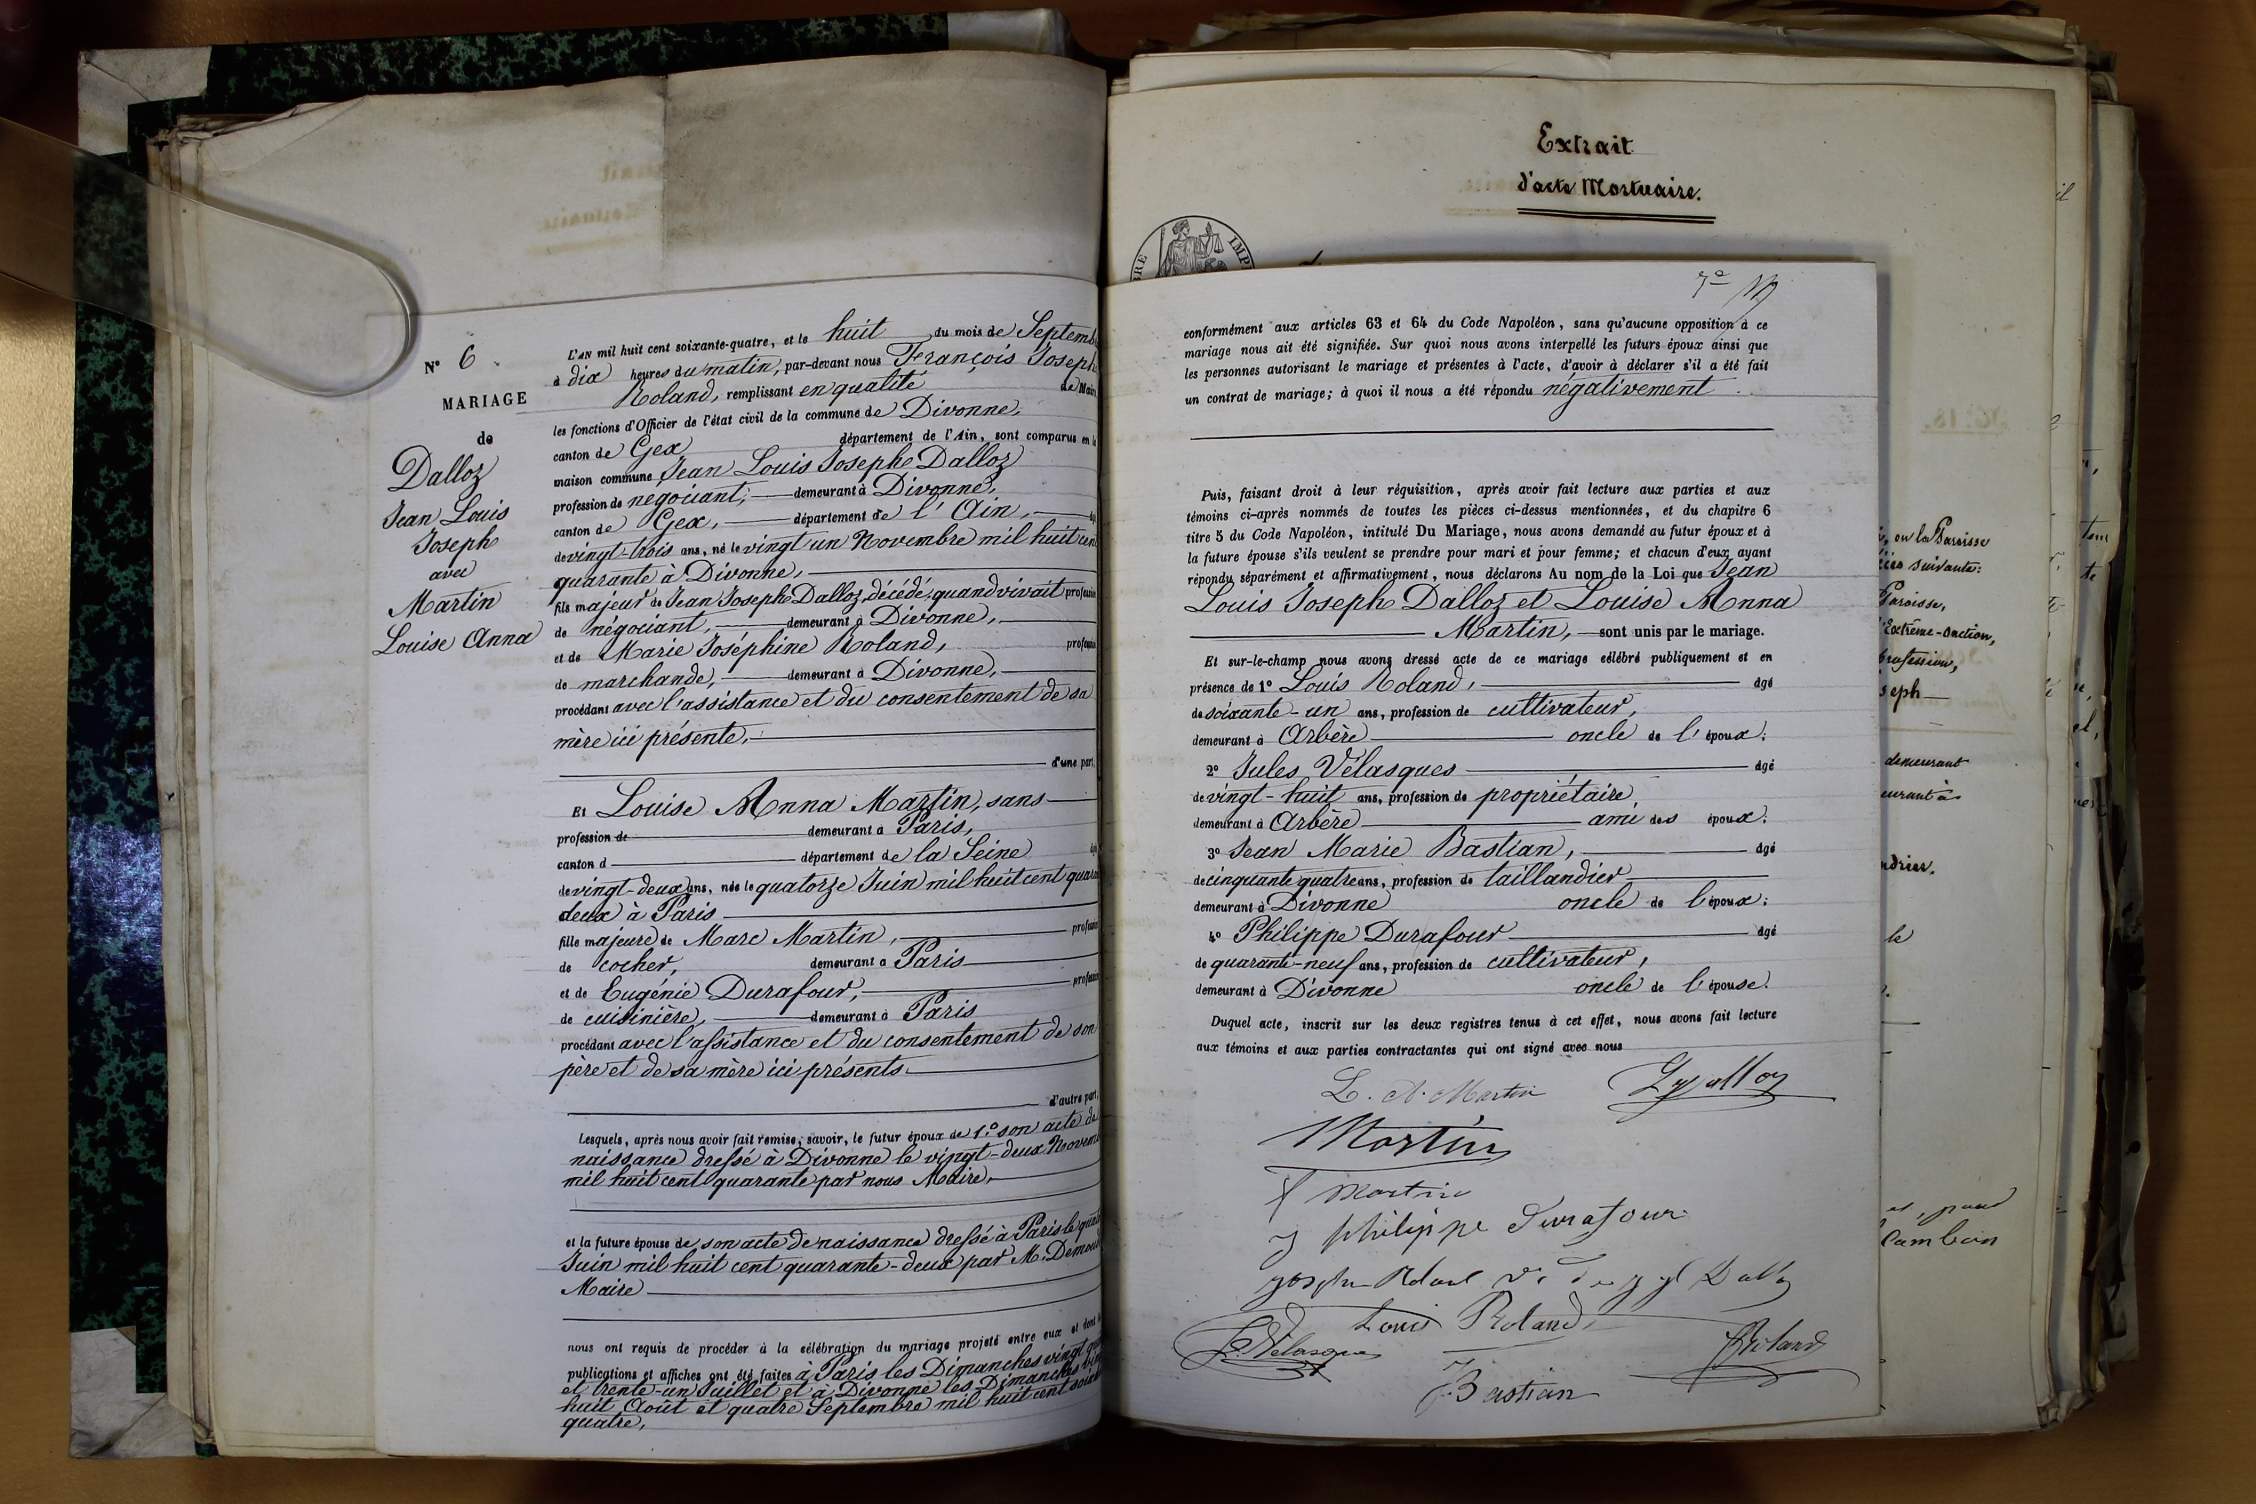 N° 6
MARIAGE
de
Dalloz
Jean Louis
Joseph
avec
Martin
Louise Anna
L'AN mil huit cent soixante-quatre, et le huit du mois de Septemb
à dix heures du matin, par-devant nous François Joseph
Roland, remplissant en qualité de Maire
les fonctions d'Officier de l'état civil de la commune de Divonne,
canton de Gex département de l'Ain, sont comparus en la
maison commune Jean Louis Joseph Dalloz
profession de négociant, demeurant à Divonne,
canton de Gex, département de l'Ain,
de vingt-trois ans, né le vingt un Novembre mil huit cent
quarante à Divonne,
fils majeur de Jean Joseph Dalloz, décédé, quand vivait profession
de négociant, demeurant à Divonne,
et de Marie Joséphine Roland, profession
de marchande, demeurant à Divonne,
procédant avec l'assistance et du consentement de sa
mère ici présente,
d'une part,
Et Louise Anna Martin, sans
profession de demeurant à Paris,
canton d département de la Seine
de vingt-deux ans, née le quatorze Juin mil huit cent quara
deux à Paris
fille majeure de Marc Martin, profession
de cocher, demeurant à Paris
et de Eugénie Durafour, profession
de cuisinière, demeurant à Paris
procédant avec l'assistance et du consentement de son
père et de sa mère ici présents
d'autre part,
Lesquels, après nous avoir fait remise, savoir, le futur époux de 1.° son acte de
naissance dressé à Divonne le vingt-deux Novem
mil huit cent quarante par nous Maire,
et la future épouse de son acte de naissance dressé à Paris le
Juin mil huit cent quarante-deux par M. Demou
Maire
nous ont requis de procéder à la célébration du mariage projeté entre eux et dont
publications et affiches ont été faites à Paris les Dimanches vingt
et trente-un Juillet et à Divonne les Dimanches
huit Août et quatre Septembre mil huit cent soix
quatre,
Extrait
d'acte Mortuaire.
conformément aux articles 63 et 64 du Code Napoléon, sans qu'aucune opposition à ce
mariage nous ait été signifiée. Sur quoi nous avons interpellé les futurs époux ainsi que
les personnes autorisant le mariage et présentes à l'acte, d'avoir à déclarer s'il a été fait
un contrat de mariage; à quoi il nous a été répondu négativement
Puis, faisant droit à leur réquisition, après avoir fait lecture aux parties et aux
témoins ci-après nommés de toutes les pièces ci-dessus mentionnées, et du chapitre 6
titre 5 du Code Napoléon, intitulé Du Mariage, nous avons demandé au futur époux et à
la future épouse s'ils veulent se prendre pour mari et pour femme; et chacun d'eux ayant
répondu séparément et affirmativement, nous déclarons Au nom de la Loi que Jean
Louis Joseph Dalloz et Louise Anna
Martin, sont unis par le mariage.
Et sur-le-champ nous avons dressé acte de ce mariage célébré publiquement et en
présence de 1° Louis Roland, âgé
de soixante-un ans, profession de cultivateur,
demeurant à Arbère oncle de l'époux;
2° Jules Vélasques âgé
de vingt-huit ans, profession de propriétaire,
demeurant à Arbère ami des époux;
3° Jean Marie Bastian, âgé
de cinquante quatre ans, profession de taillandier
demeurant à Divonne oncle de l'époux;
4° Philippe Durafour âgé
de quarante-neuf ans, profession de cultivateur,
demeurant à Divonne oncle de l'épouse.
Duquel acte, inscrit sur les deux registres tenus à cet effet, nous avons fait lecture
aux témoins et aux parties contractantes qui ont signé avec nous
L. A. Martin
Martin
Martin
philippe Durafour
Louis Roland
Vélasques
Roland
Bastian
, en la Paroisse
suivante:
Paroisse,
Extrême-Onction,
profession,
seph
demeurant